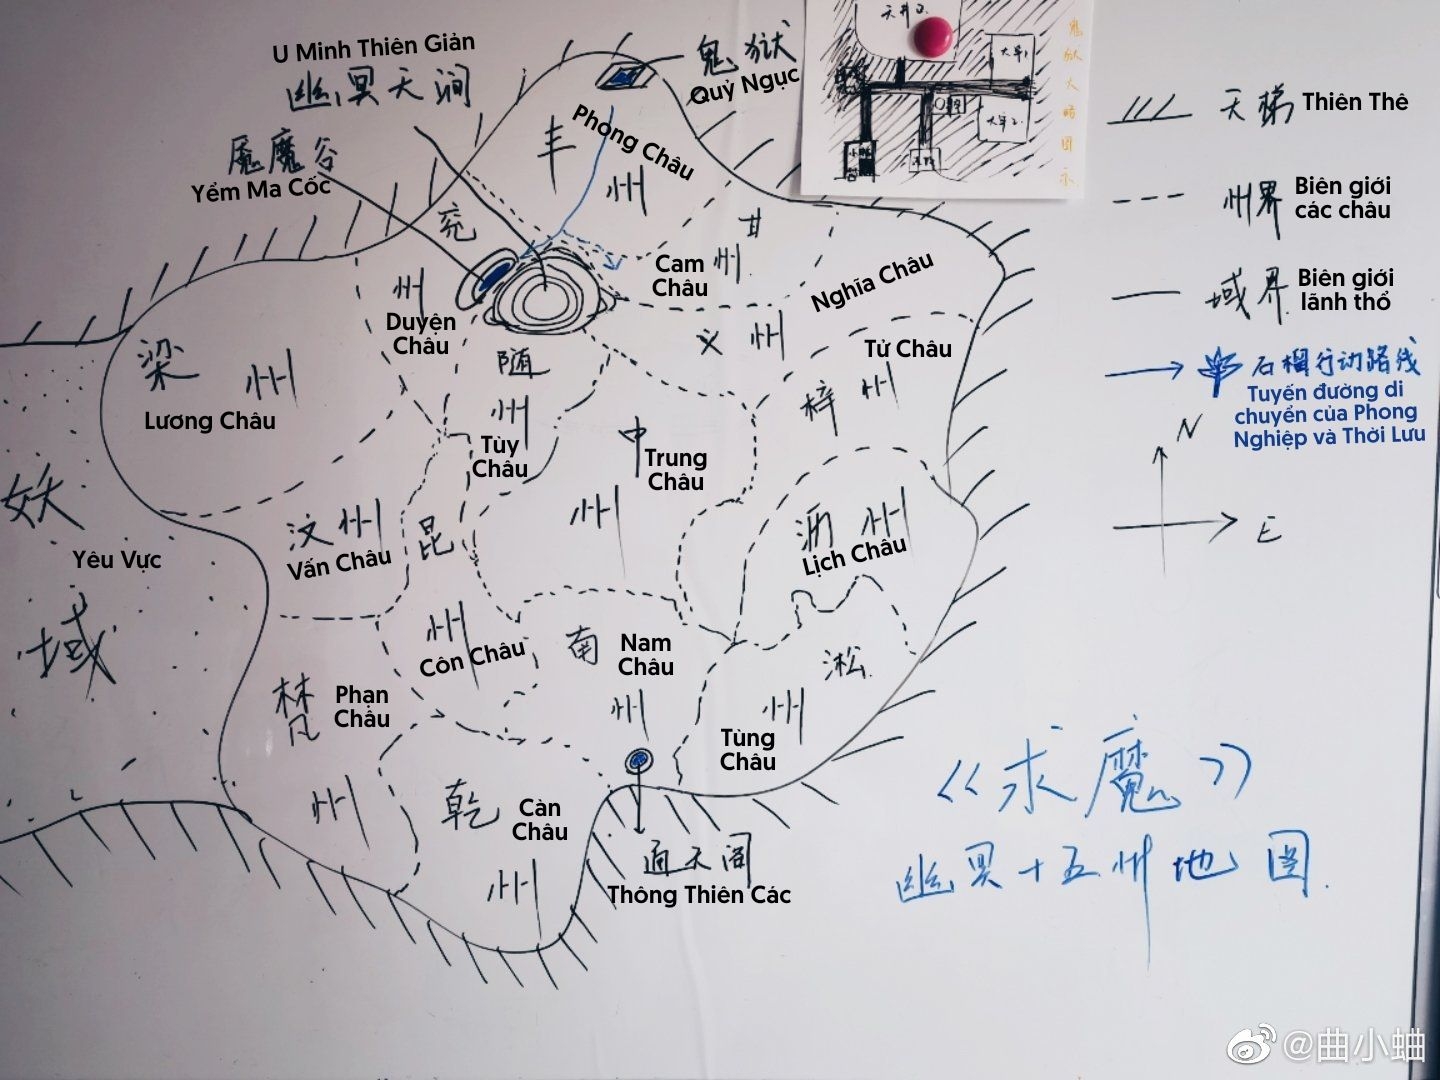 U Minh Thiên Giản
幽冥天涧
鬼狱
Quỷ Ngục
天井2.
大牢1
大牢2.
鬼狱大略图示
魇魔谷
Yểm Ma Cốc
丰州
Phong Châu
兖州
Duyện Châu
甘州
Cam Châu
Nghĩa Châu
义州
Tử Châu
梓州
梁州
Lương Châu
随州
Tùy Châu
中州
Trung Châu
汶州
Vấn Châu
昆州
Côn Châu
沥州
Lịch Châu
妖域
Yêu Vực
南州
Nam Châu
淞州
Tùng Châu
梵州
Phạn Châu
乾州
Càn Châu
通天阁
Thông Thiên Các
天梯 Thiên Thê
州界 Biên giới
các châu
域界 Biên giới
lãnh thổ
石榴行动路线
Tuyến đường di
chuyển của Phong
Nghiệp và Thời Lưu
N
E
《求魔》
幽冥十五州地图.
@曲小蛐